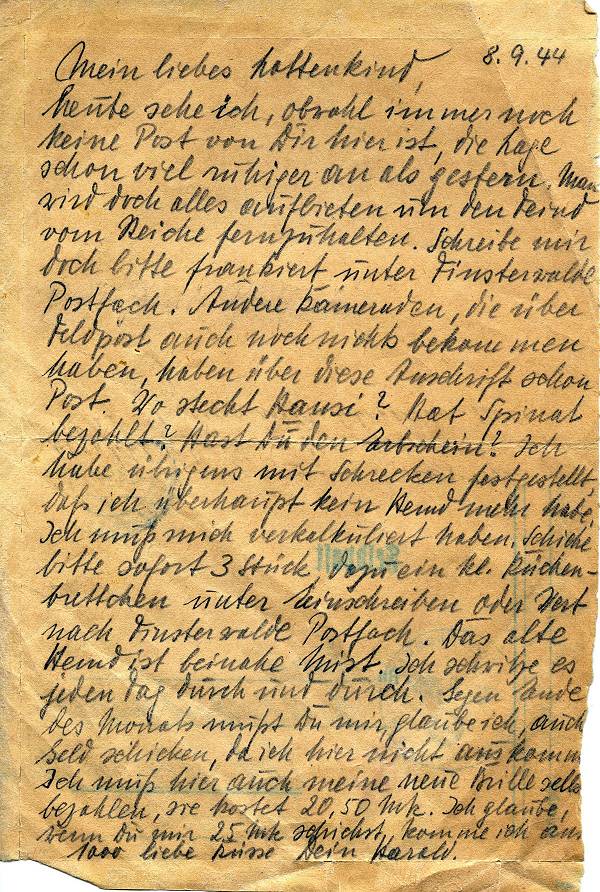 8.9.44
Mein liebes Lottenkind,
heute sehe ich, obwohl immer noch
keine Post von Dir hier ist, die Lage
schon viel ruhiger an als gestern. Man
wird doch alles aufbieten um den Feind
vom Reiche fernzuhalten. Schreibe mir
doch bitte frankiert unter Finsterwalde
Postfach. Andere Kameraden, die über
Feldpost auch noch nichts bekommen
haben, haben über diese Anschrift schon
Post. Wo steckt Hansi? Hat Spinat
bezahlt? Hast Du den Erbschein? Ich
habe übrigens mit Schrecken festgestellt,
daß ich überhaupt kein Hemd mehr habe.
Ich muß mich verkalkuliert haben. Schicke
bitte sofort 3 Stück. Dazu ein kl. Küchen-
brettchen unter Einschreiben oder Wert
nach Finsterwalde Postfach. Das alte
Hemd ist beinahe Mist. Ich schwitze es
jeden Tag durch und durch. Gegen Ende
des Monats mußt Du mir, glaube ich, auch
Geld schicken, da ich hier nicht auskomm
Ich muß hier auch meine neue Brille selb
bezahlen, sie kostet 20,50 Mk. Ich glaube,
wenn Du mir 25 Mk schickst, komme ich aus
1000 liebe Küsse Dein Harald.